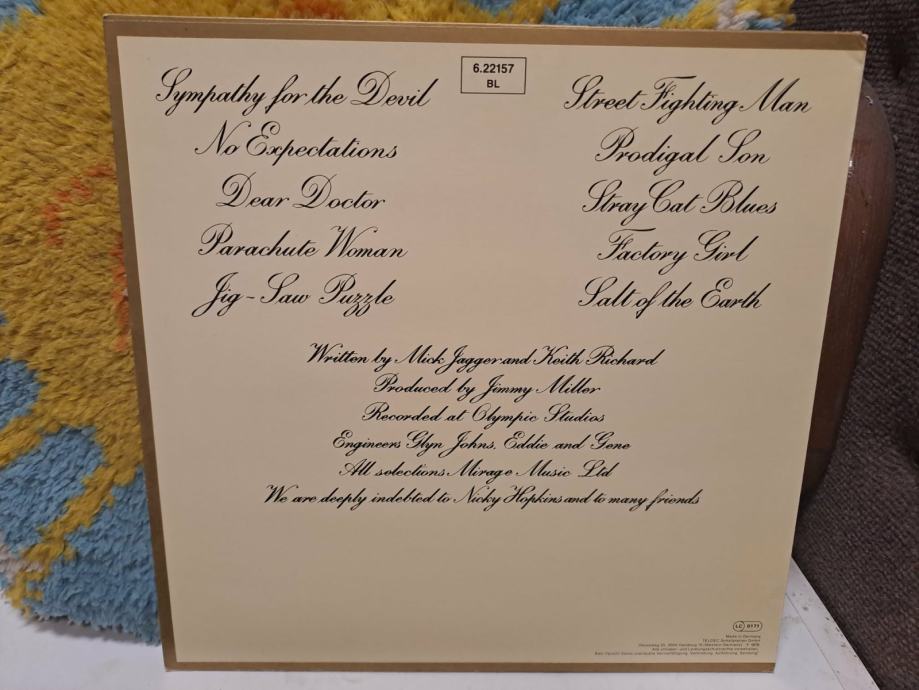 6.22157
BL
Sympathy for the Devil
No Expectations
Dear Doctor
Parachute Woman
Jig-Saw Puzzle
Street Fighting Man
Prodigal Son
Stray Cat Blues
Factory Girl
Salt of the Earth
Written by Mick Jagger and Keith Richard
Produced by Jimmy Miller
Recorded at Olympic Studios
Engineers Glyn Johns, Eddie and Gene
All selections Mirage Music Ltd
We are deeply indebted to Nicky Hopkins and to many friends
LC 0171
Made in Germany
TELDEC Schallplatten GmbH